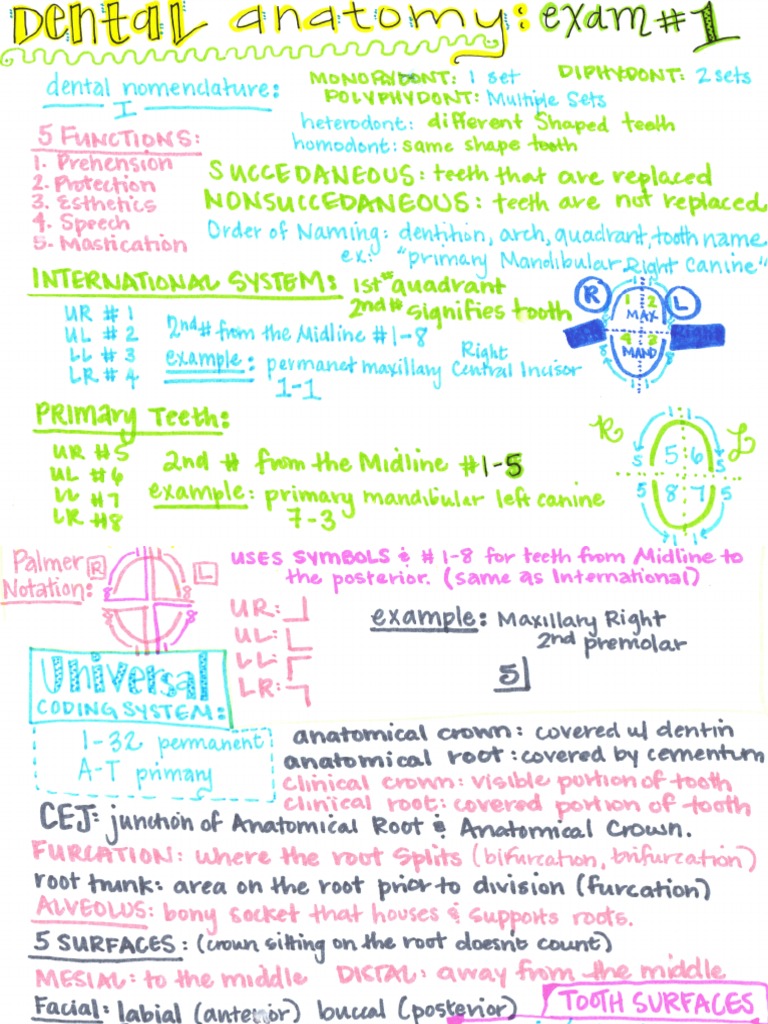 Dental anatomy: exam #1
dental nomenclature:
I
MONOPHYDONT: 1 set
DIPHYDONT: 2 sets
POLYPHYDONT: Multiple Sets
heterodont: different Shaped teeth
homodont: same shape teeth
5 FUNCTIONS:
1. Prehension
2. Protection
3. Esthetics
4. Speech
5. Mastication
SUCCEDANEOUS: teeth that are replaced
NONSUCCEDANEOUS: teeth are not replaced
Order of Naming: dentition, arch, quadrant, tooth name
ex: "primary Mandibular Right Canine"
INTERNATIONAL SYSTEM: 1st # quadrant
2nd # signifies tooth
UR # 1
UL # 2
LL # 3
LR # 4
2nd # from the Midline # 1-8
example: permanet maxillary Right Central Incisor
1-1
R L
1 2
MAX
4 3
MAND
8 8
1 1
PRIMARY Teeth:
UR #5
UL #6
LL #7
LR #8
2nd # from the Midline #1-5
example: primary mandibular left canine
7-3
R L
1 1
5 5 6 5
5 8 7 5
1 1
Palmer
Notation:
R L
8 8
8 8
USES SYMBOLS & # 1-8 for teeth from Midline to
the posterior. (same as International)
UR: ┘
UL: └
LL: ┌
LR: ┐
example: Maxillary Right
2nd premolar
5┘
Universal
CODING SYSTEM:
1-32 permanent
A-T primary
anatomical crown: covered w/ dentin
anatomical root: covered by cementum
clinical crown: visible portion of tooth
clinical root: covered portion of tooth
CEJ: junction of Anatomical Root & Anatomical Crown.
FURCATION: where the root splits (bifurcation, trifurcation)
root trunk: area on the root prior to division (furcation)
ALVEOLUS: bony socket that houses & supports roots.
5 SURFACES: (crown sitting on the root doesn't count)
MESIAL: to the middle DISTAL: away from the middle
Facial: labial (anterior) buccal (posterior)
TOOTH SURFACES